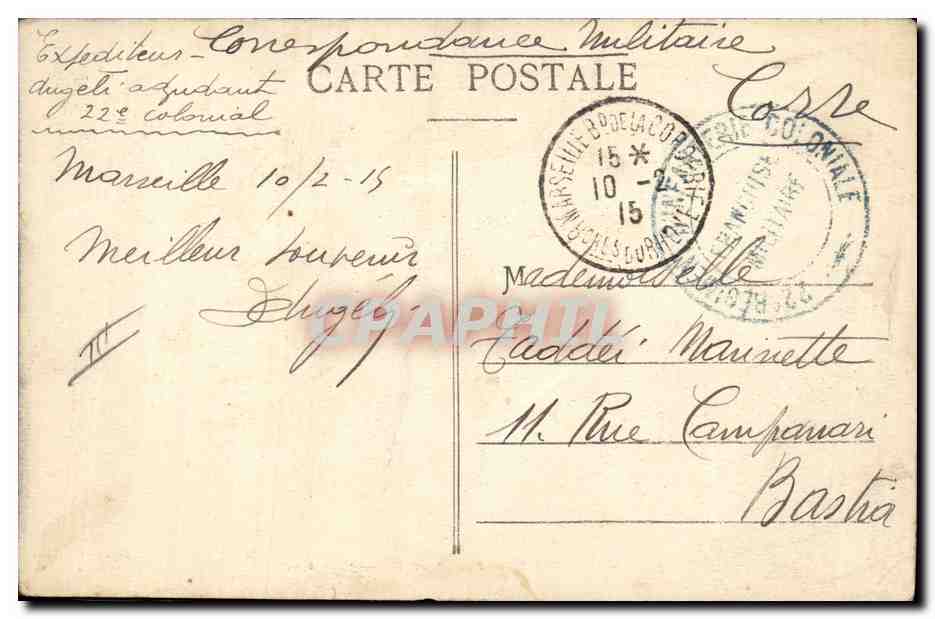 Correspondance Militaire
Expediteur -
Angeli adjudant
22e colonial
CARTE POSTALE
Corse
MARSEILLE BD DE LA CORDERIE
15 *
10 - 2
15
BCHES DU RHONE
22e RÉGIMENT D'INFANTERIE COLONIALE
FRANCHISE
MILITAIRE
Marseille 10/2-15
Meilleur souvenir
Angeli
III
Mademoiselle
Taddei Marinette
11. Rue Campanari
Bastia
CPAPHIL